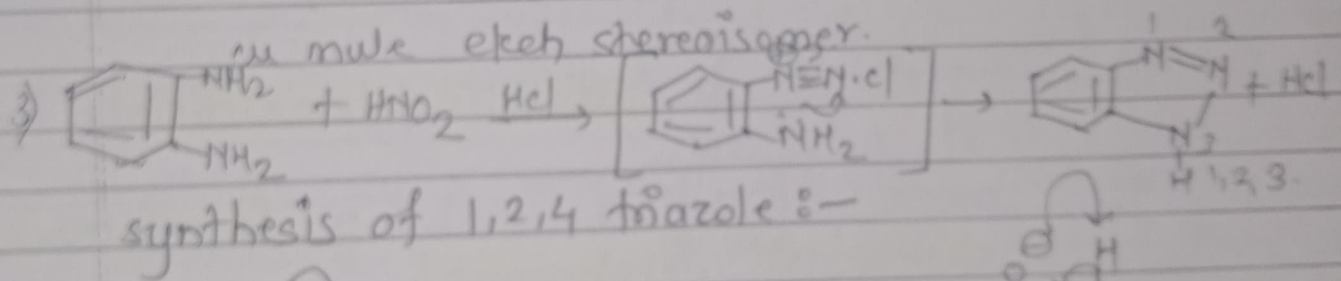 mule each stereoisomer.
3) NH2 NH2 + HNO2 HCl → [ N≡N.cl NH2 ] → 1 2 N=N N3 H + HCl
1,2,3.
synthesis of 1,2,4 triazole :-
⊖ H